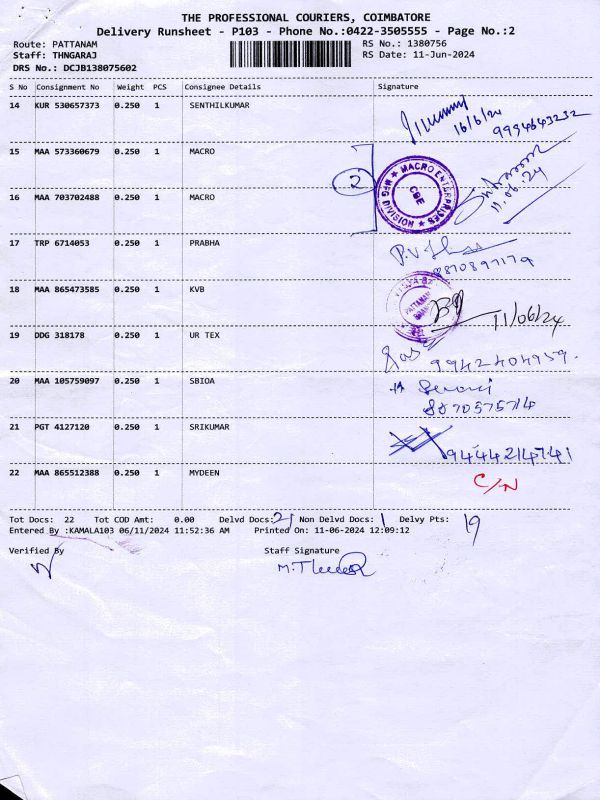 THE PROFESSIONAL COURIERS, COIMBATORE
Delivery Runsheet - P103 - Phone No.:0422-3505555 - Page No.:2
Route: PATTANAM RS No.: 1380756
Staff: THNGARAJ RS Date: 11-Jun-2024
DRS No.: DCJB138075602
S No Consignment No Weight PCS Consignee Details Signature
14 KUR 530657373 0.250 1 SENTHILKUMAR
16/6/24 9994643232
15 MAA 573360679 0.250 1 MACRO
2 MACRO ENTERPRISES CBE MFG DIVISION
11.06.24
16 MAA 703702488 0.250 1 MACRO
17 TRP 6714053 0.250 1 PRABHA
8870897179
18 MAA 865473585 0.250 1 KVB
PATTANAM
11/06/24
19 DDG 318178 0.250 1 UR TEX
9942404959.
20 MAA 105759097 0.250 1 SBIOA
8870575714
21 PGT 4127120 0.250 1 SRIKUMAR
9444214741
22 MAA 865512388 0.250 1 MYDEEN C/N
Tot Docs: 22 Tot COD Amt: 0.00 Delvd Docs: 21 Non Delvd Docs: 1 Delvy Pts: 19
Entered By :KAMALA103 06/11/2024 11:52:36 AM Printed On: 11-06-2024 12:09:12
Verified By Staff Signature